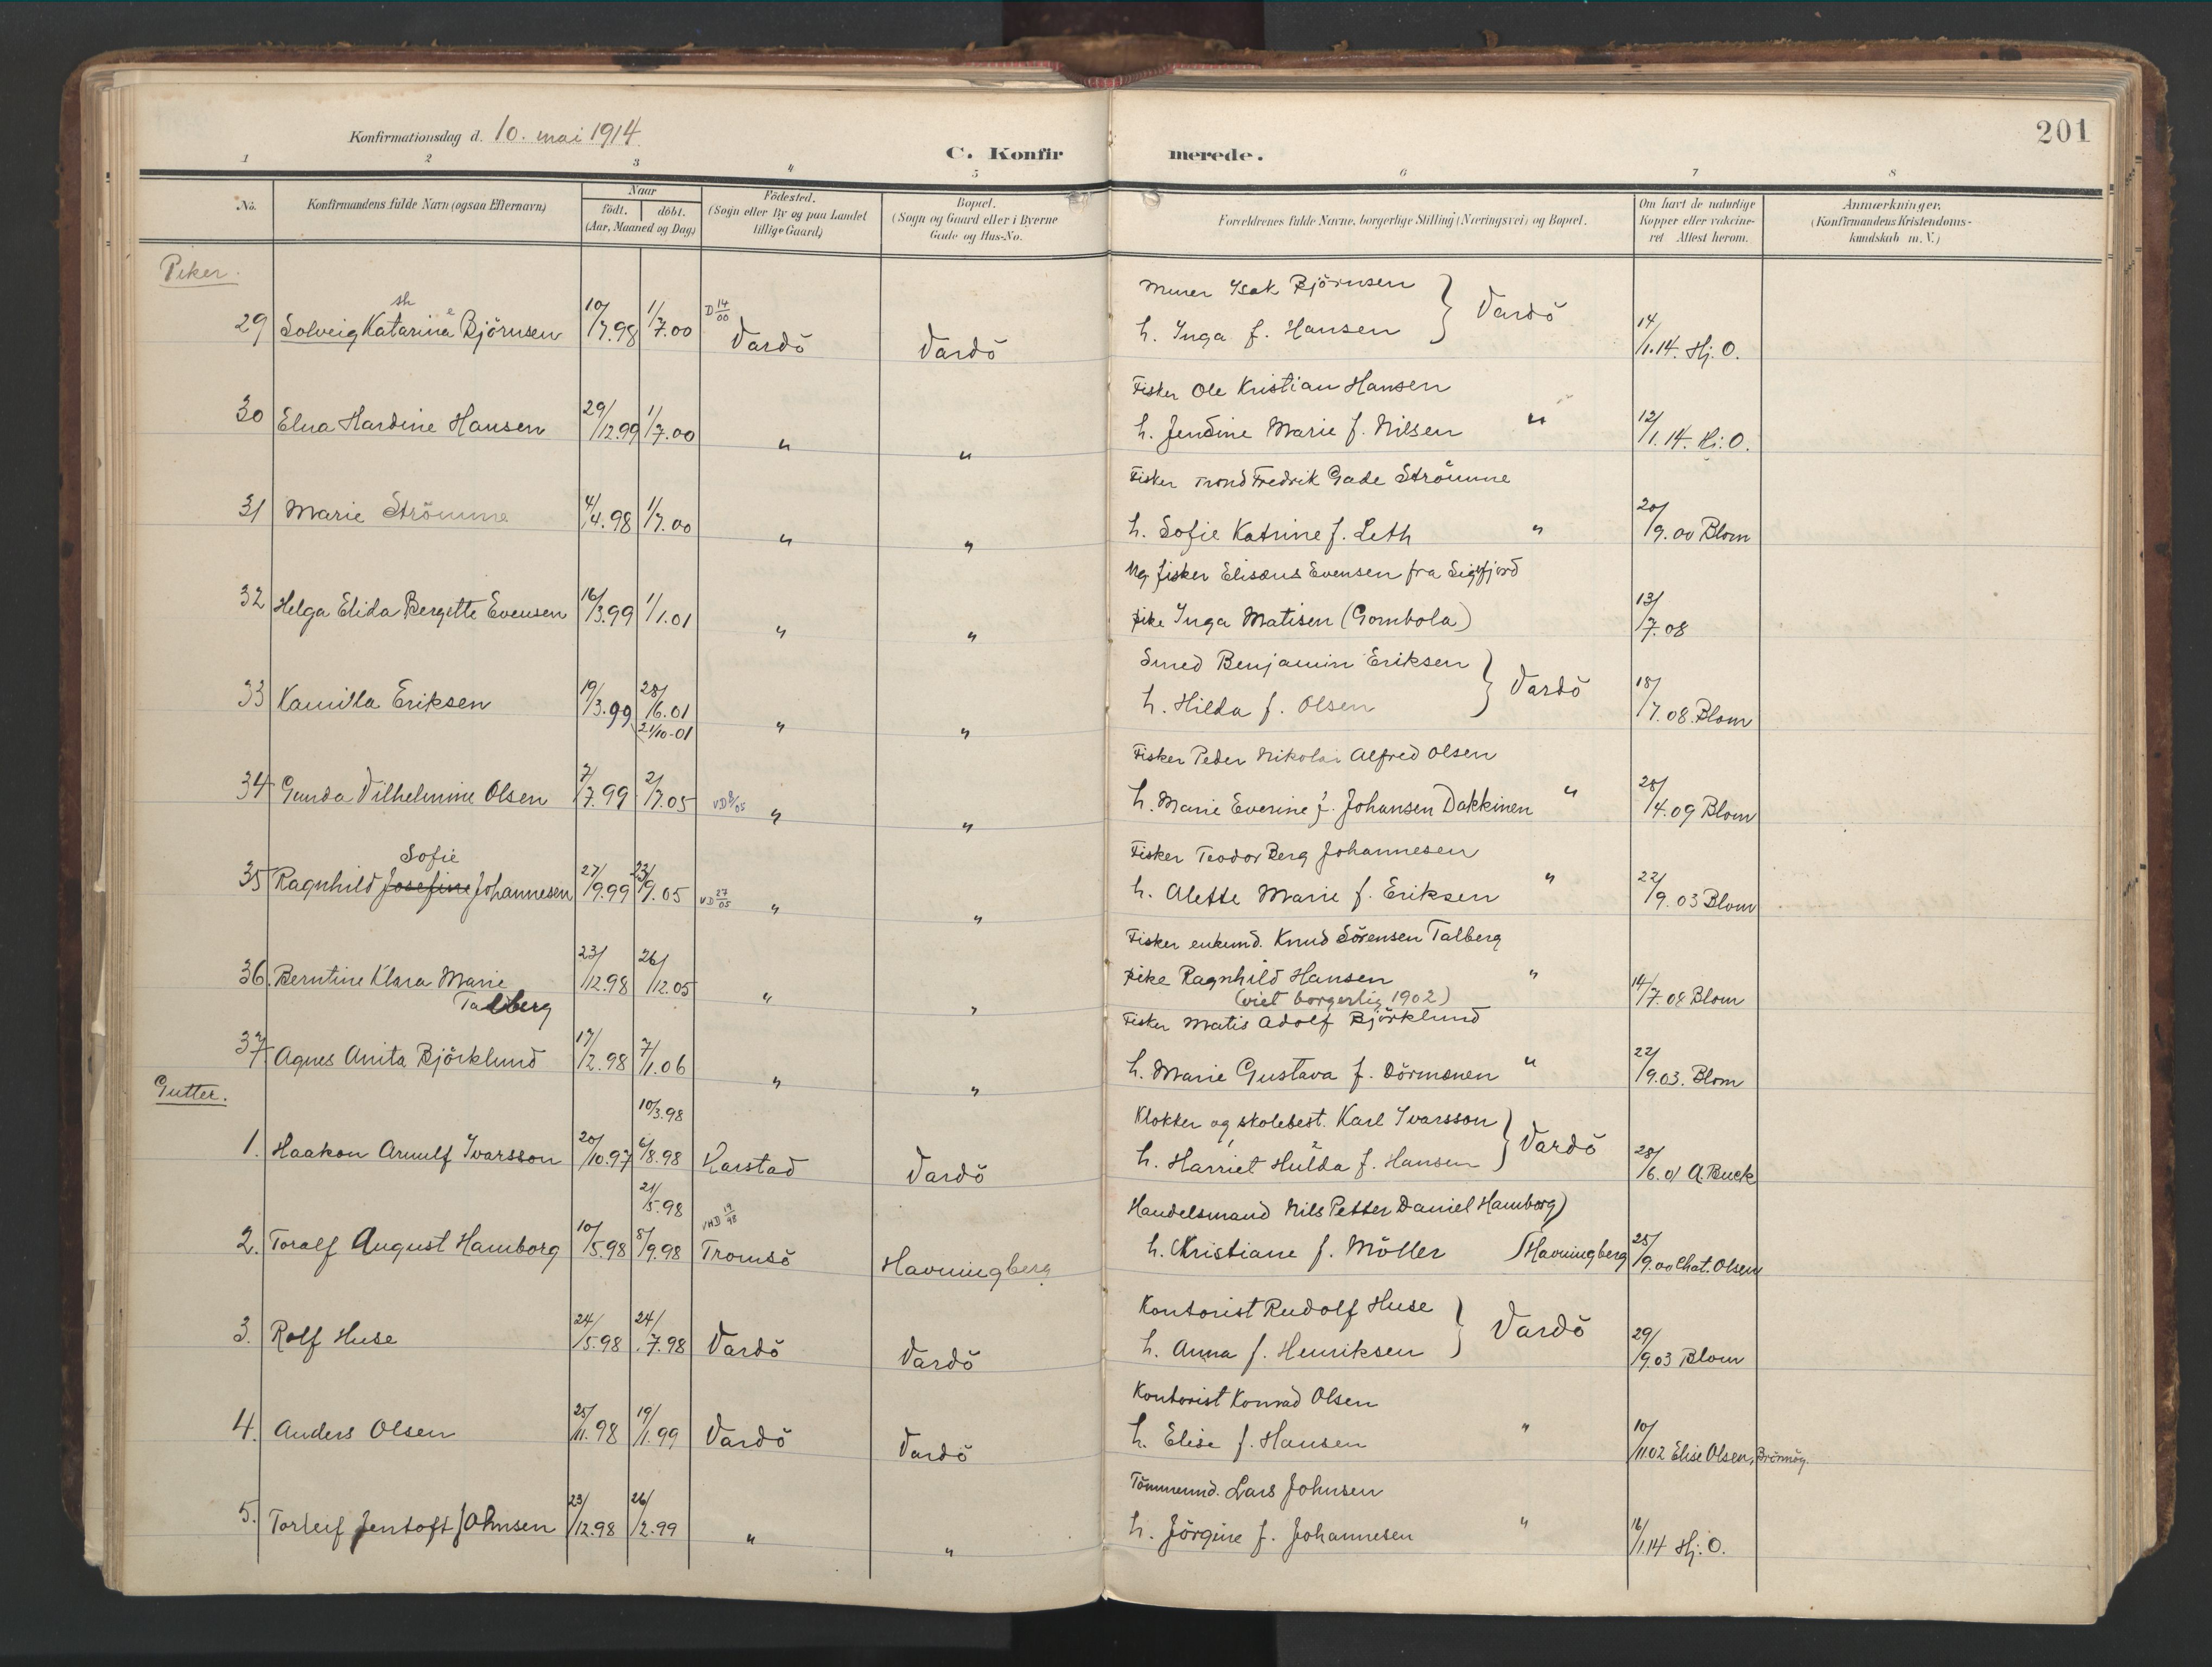 Konfirmationsdag d. 10. mai 1914
C. Konfirmerede.
201
1 2 3 4 5 6 7 8
No.
Konfirmandens fulde Navn (ogsaa Efternavn)
Naar
födt. döbt.
(Aar, Maaned og Dag)
Födested.
(Sogn eller By og paa Landet
tillige Gaard)
Bopæl.
(Sogn og Gaard eller i Byerne
Gade og Hus-No.
Forældrenes fulde Navne, borgerlige Stilling (Næringsvei) og Bopæl.
Om havt de naturlige
Kopper eller vakcine-
ret Attest herom.
Anmærkninger,
(Konfirmandens Kristendoms-
kundskab m. V.)
Piker.
Murer Isak Björnsen
29 Solveig Katarina Björnsen 10/7.98 1/7.00 D 14/00 Vardö Vardö h. Inga f. Hansen } Vardö 14/1.14. Hj. O.
Fisker Ole Kristian Hansen
30 Elna Hardine Hansen 29/12.99 1/7.00 " " h. Jendine Marie f. Nilsen " 12/1.14. Hj. O.
Fisker Trond Fredrik Gade Strömme
31 Marie Strömme 4/4.98 1/7.00 " " h. Sofie Katrine f. Leth " 20/9.00 Blom
Ug. fisker Elisæus Evensen fra Sigfjord
32 Helga Elida Bergette Evensen 16/3.99 1/1.01 " " pike Inga Matisen (Gombola) 13/7.08
Smed Benjamin Eriksen
33 Kamilla Eriksen 19/3.99 28/6.01 " " h. Hilda f. Olsen } Vardö 18/7.08. Blom
21/10-01
Fisker Peder Nikolai Alfred Olsen
34 Gunda Vilhelmine Olsen 7/7.99 2/7.05 VD 8/05 " " h. Marie Everine f. Johansen Dakkinen " 28/4.09 Blom
Sofie
Fisker Teodor Berg Johannesen
35 Ragnhild Josefine Johannesen 27/9.99 23/9.05 VD 27/05 " " h. Alette Marie f. Eriksen " 22/9.03 Blom
Fisker enkemd. Knud Sörensen Talberg
36. Berntine Klara Marie 23/12.98 26/12.05 " " pike Ragnhild Hansen " 14/7.08 Blom
Talberg
(viet borgerlig 1902)
Fisker Matis Adolf Björklund
37 Agnes Anita Björklund 17/12.98 7/1.06 " " h. Marie Gustava f. Dörmænen " 22/9.03. Blom
Gutter.
10/3.98
Klokker og skolebest. Karl Ivarsson
1. Haakon Arnulf Ivarsson 20/10.97 6/8.98 Harstad Vardö h. Harriet Hulda f. Hansen } Vardö 28/6.01 A. Buck
21/5.98
Handelsmand Nils Petter Daniel Hamborg
2. Toralf August Hamborg 10/5.98 8/9.98 VHD 19/98 Tromsö Havningberg h. Kristiane f. Möller } Havningberg 25/9.00 Chat. Olsen
Kontorist Rudolf Huse
3. Rolf Huse 24/5.98 24/7.98 Vardö Vardö h. Anna f. Henriksen } Vardö 29/9.03 Blom
Kontorist Konrad Olsen
4. Anders Olsen 25/11.98 19/1.99 Vardö Vardö h. Elise f. Hansen " 10/11.02 Elise Olsen, Brönnöy
Tömmermd. Lars Johnsen
5. Torleif Jentoft Johnsen 23/12.98 26/2.99 " " h. Jörgine f. Johannesen " 16/1.14 Hj. O.